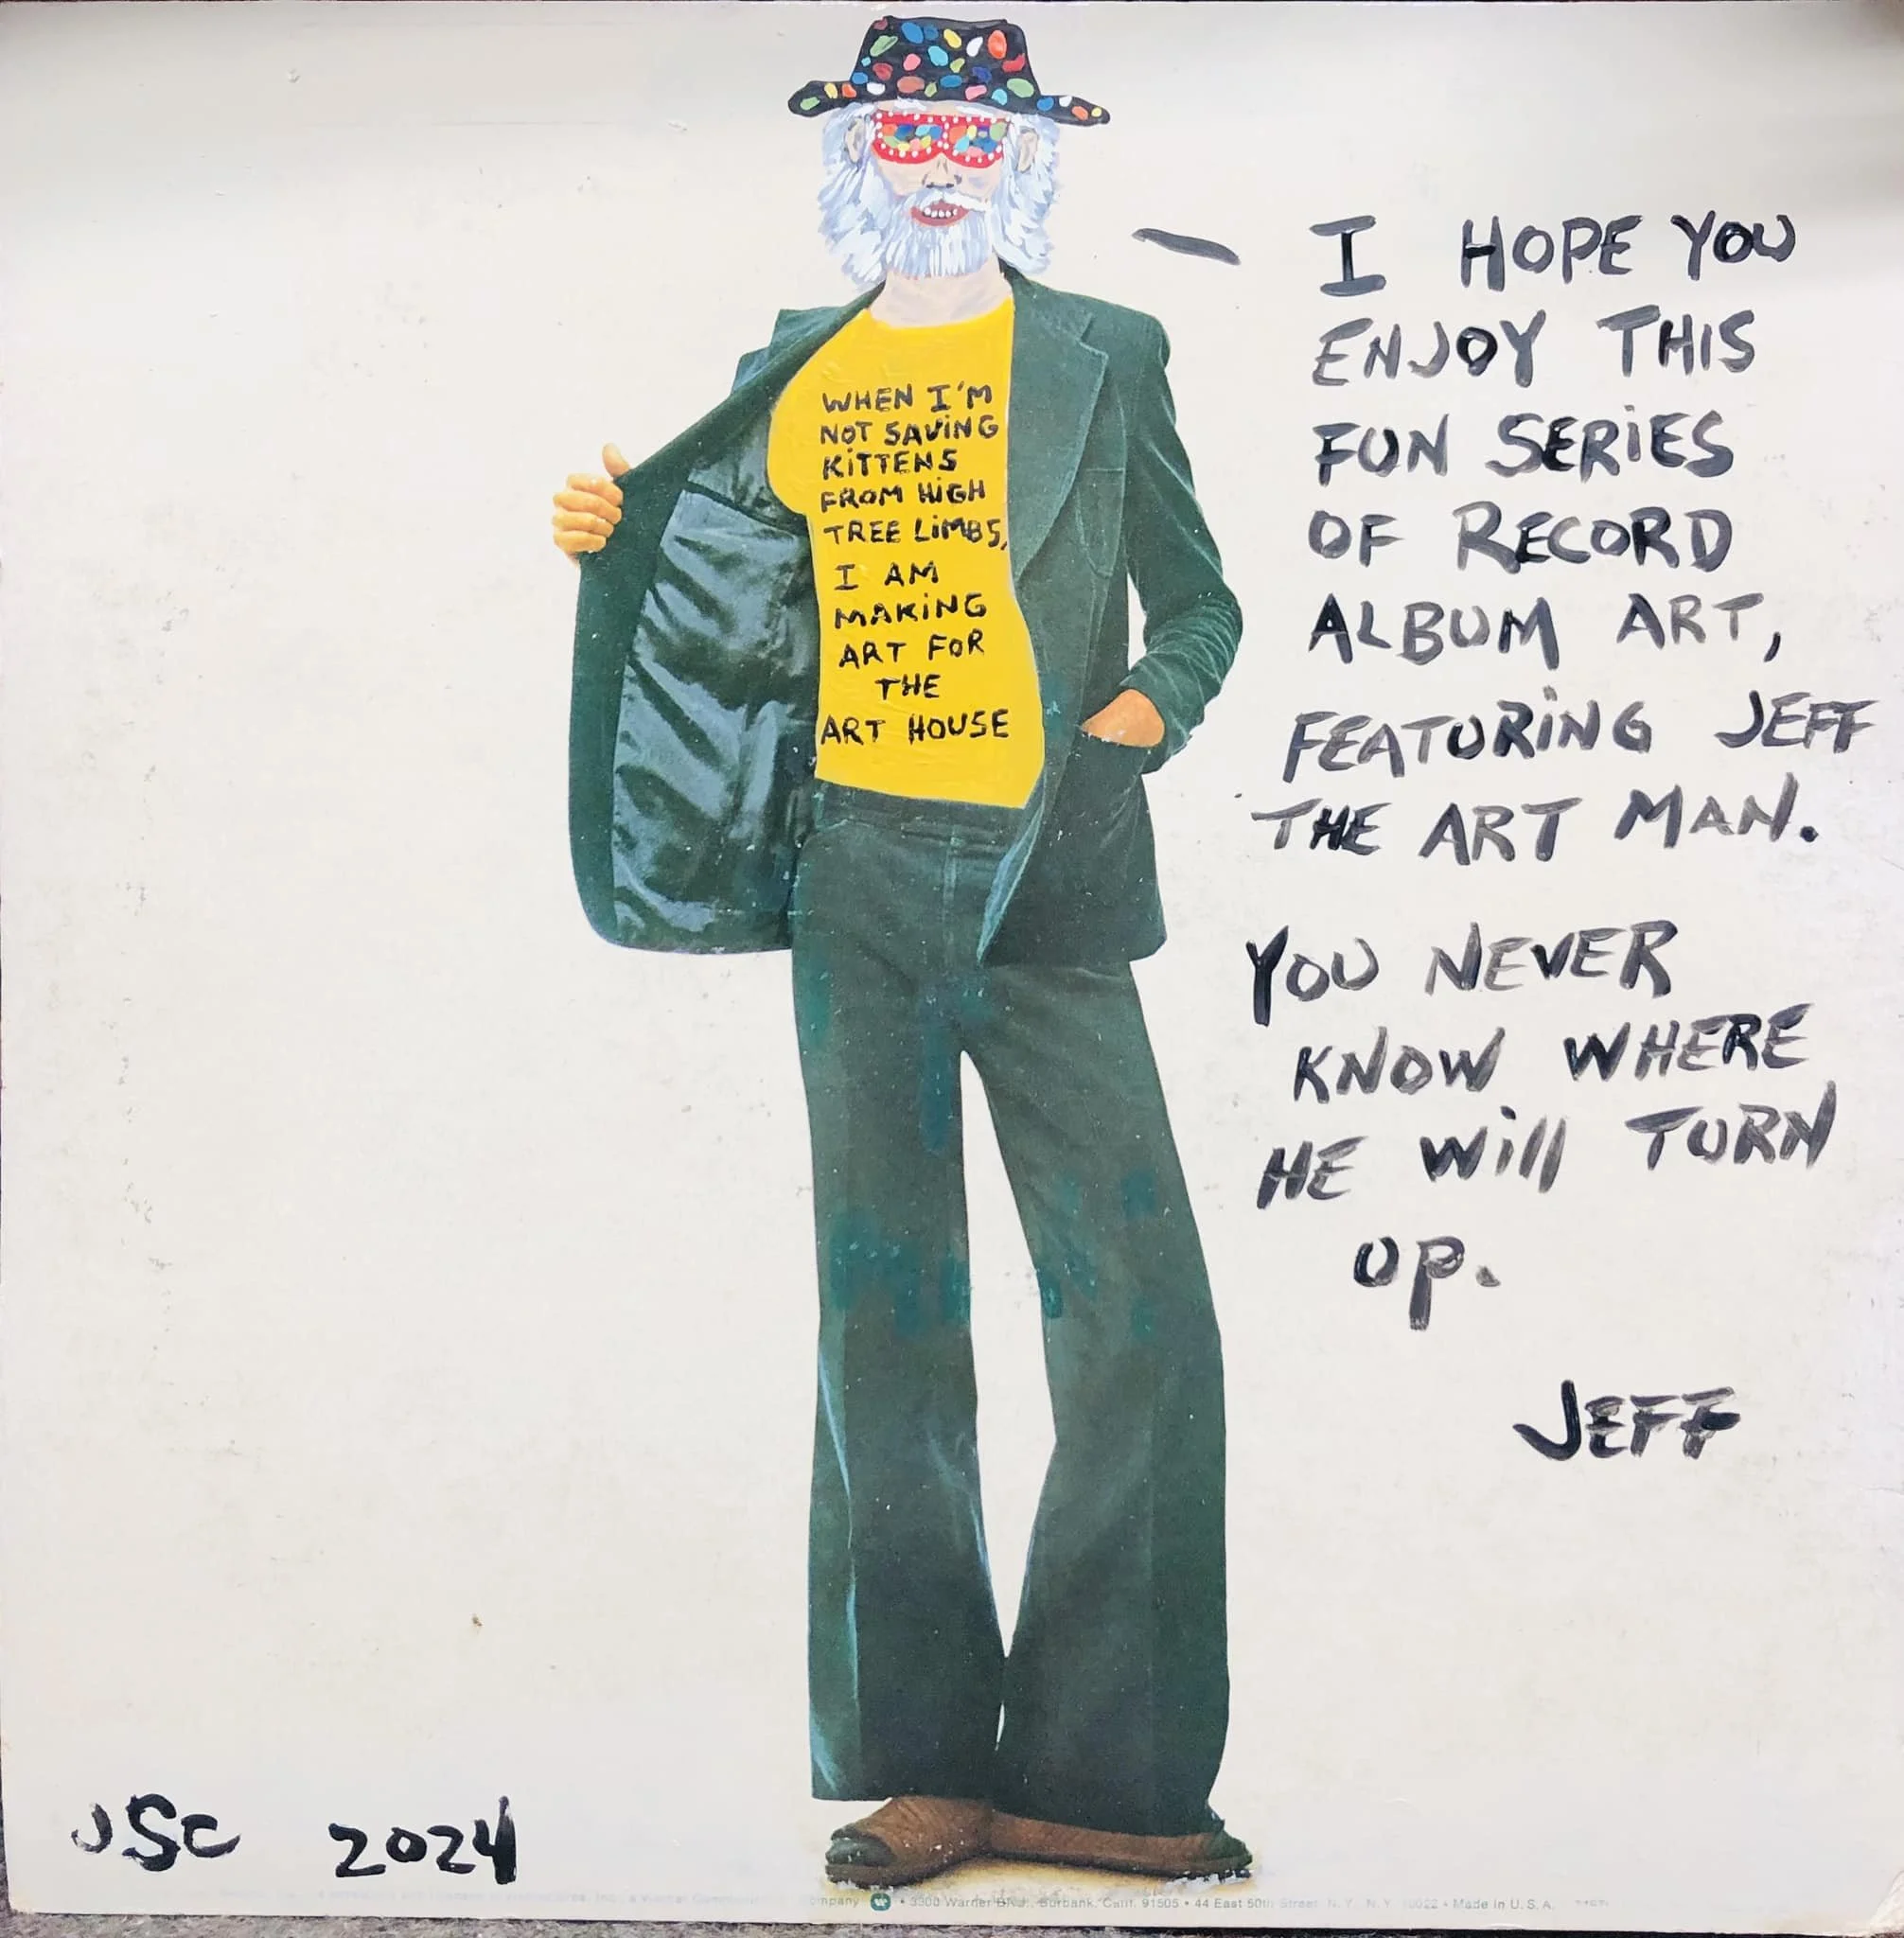 WHEN I'M
NOT SAVING
KITTENS
FROM HIGH
TREE LIMBS,
I AM
MAKING
ART FOR
THE
ART HOUSE
I HOPE YOU
ENJOY THIS
FUN SERIES
OF RECORD
ALBUM ART,
FEATURING JEFF
THE ART MAN.
YOU NEVER
KNOW WHERE
HE Will TURN
UP.
JEFF
JSC 2024
• 3300 Warner Blvd., Burbank, Calif. 91505 • 44 East 50th Street N.Y., N.Y. 10022 • Made in U.S.A.